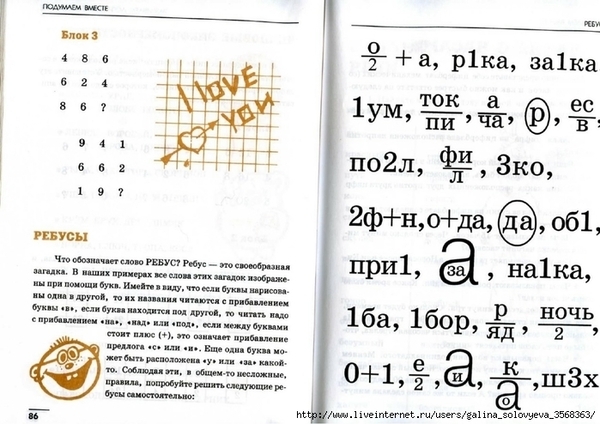 ПОДУМАЕМ ВМЕСТЕ
Блок 3
4 8 6
6 2 4
8 6 ?
9 4 1
6 6 2
1 9 ?
I LOVE
YOU
РЕБУСЫ
Что обозначает слово РЕБУС? Ребус — это своеобразная
загадка. В наших примерах все слова этих загадок изображе-
ны при помощи букв. Имейте в виду, что если буквы нарисова-
ны одна в другой, то их названия читаются с прибавлением
буквы «в», если буква находится под другой, то читать надо
с прибавлением «на», «над» или «под», если между буквами
стоит плюс (+), это означает прибавление
предлога «с» или «и». Еще одна буква мо-
жет быть расположена «у» или «за» какой-
то. Соблюдая эти, в общем-то несложные,
правила, попробуйте решить следующие ре-
бусы самостоятельно:
86
РЕБУС
о/2 + а, р1ка, за1ка
1ум, ток/пи, а/ча, р, ес/в
по2л, фи/л, 3ко,
2ф+н,о+да, да, об1,
при1, а за, на1ка,
1ба, 1бор, р/яд, ночь/2,
0+1, е/2, а и, к/о а,ш3х
http://www.liveinternet.ru/users/galina_solovyeva_3568363/